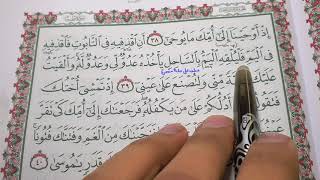 إِذْ أَوْحَيْنَا إِلَىٰ أُمِّكَ مَا يُوحَىٰ ﴿٣٨﴾ أَنِ اقْذِفِيهِ فِي التَّابُوتِ فَاقْذِفِيهِ
فِي الْيَمِّ فَلْيُلْقِهِ الْيَمُّ بِالسَّاحِلِ يَأْخُذْهُ عَدُوٌّ لِي وَعَدُوٌّ لَهُ وَأَلْقَيْتُ
عَلَيْكَ مَحَبَّةً مِنِّي وَلِتُصْنَعَ عَلَىٰ عَيْنِي ﴿٣٩﴾ إِذْ تَمْشِي أُخْتُكَ
فَتَقُولُ هَلْ أَدُلُّكُمْ عَلَىٰ مَنْ يَكْفُلُهُ فَرَجَعْنَاكَ إِلَىٰ أُمِّكَ كَيْ تَقَرَّ
مِنَ الْغَمِّ وَفَتَنَّاكَ فُتُونًا
قَدَرٍ يَا مُوسَىٰ ﴿٤٠﴾